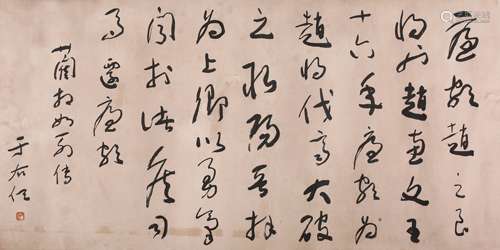 廉頗趙之良
將也趙惠文王
十六年廉頗為
趙將伐齊大破
之取陽晉拜
為上卿以勇氣
聞於諸侯司
馬遷廉頗
藺相如列傳
于右任